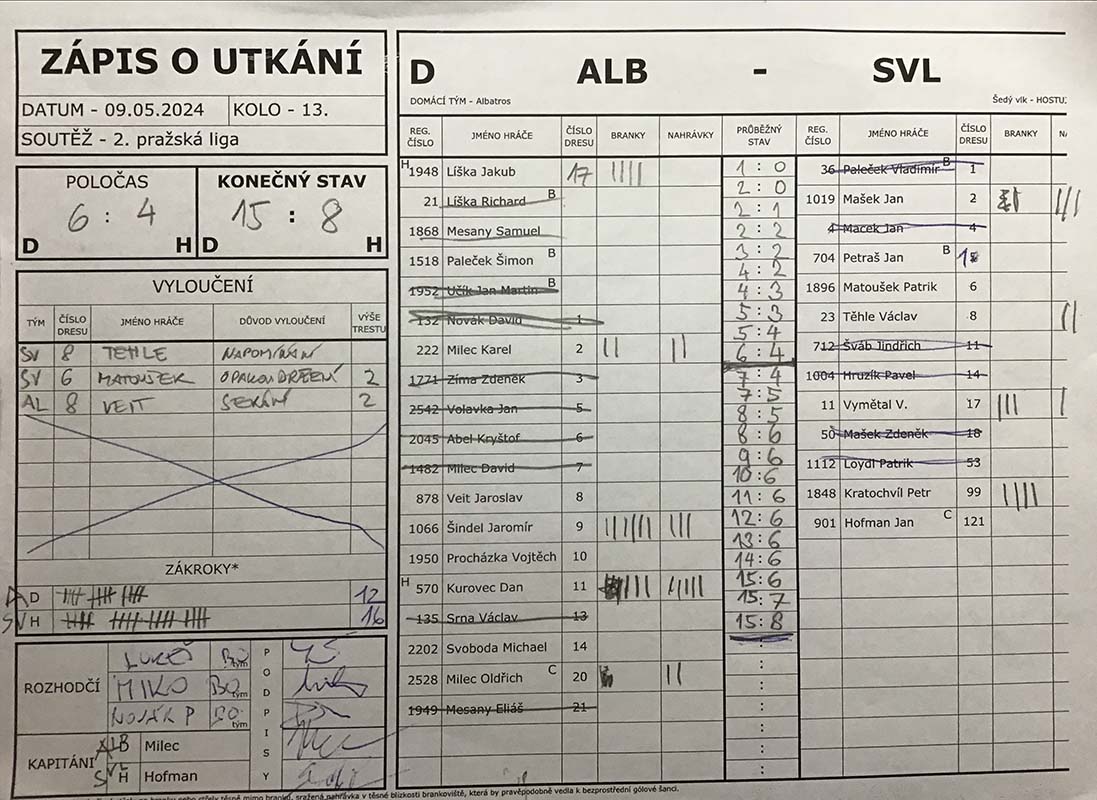 ZÁPIS O UTKÁNÍ
DATUM - 09.05.2024 KOLO - 13.
SOUTĚŽ - 2. pražská liga
POLOČAS KONEČNÝ STAV
6 : 4 15 : 8
D H D H
VYLOUČENÍ
TÝM ČÍSLO DRESU JMÉNO HRÁČE DŮVOD VYLOUČENÍ VÝŠE TRESTU
SV 8 TEHLE NAPOMÍNÁNÍ
SV 6 MATOUŠEK OPAKOV DRŽENÍ 2
AL 8 VEIT SEKÁNÍ 2
ZÁKROKY*
A D 12
SV H 16
ROZHODČÍ
LUKEŠ BO tým
MIKO BO tým
NOVÁK P BO tým
PODPISY
KAPITÁNI
ALB Milec
SVL H Hofman
D ALB - SVL
DOMÁCÍ TÝM - Albatros Šedý vlk - HOSTU
REG. ČÍSLO JMÉNO HRÁČE ČÍSLO DRESU BRANKY NAHRÁVKY
H 1948 Líška Jakub 17 ||||
21 Líška Richard B
1868 Mesany Samuel
1518 Paleček Šimon B
1952 Učík Jan Martin B
132 Novák David 1
222 Milec Karel 2 || ||
1771 Zíma Zdeněk 3
2542 Volavka Jan 5
2045 Abel Kryštof 6
1482 Milec David 7
878 Veit Jaroslav 8
1066 Šindel Jaromír 9
1950 Procházka Vojtěch 10
H 570 Kurovec Dan 11
135 Srna Václav 13
2202 Svoboda Michael 14
2528 Milec Oldřich C 20 ||
1949 Mesany Eliáš 21
PRŮBĚŽNÝ STAV
1 : 0
2 : 0
2 : 1
2 : 2
3 : 2
4 : 2
4 : 3
5 : 3
5 : 4
6 : 4
7 : 4
7 : 5
8 : 5
8 : 6
9 : 6
10 : 6
11 : 6
12 : 6
13 : 6
14 : 6
15 : 6
15 : 7
15 : 8
REG. ČÍSLO JMÉNO HRÁČE ČÍSLO DRESU BRANKY NA
36 Paleček Vladimír B 1
1019 Mašek Jan 2 |||
4 Macek Jan 4
704 Petraš Jan B
1896 Matoušek Patrik 6
23 Těhle Václav 8 ||
712 Šváb Jindřich 11
1004 Hruzík Pavel 14
11 Vymětal V. 17 ||| |
50 Mašek Zdeněk 18
1112 Loydl Patrik 53
1848 Kratochvíl Petr 99 ||||
901 Hofman Jan C 121
sražená nahrávka v těsné blízkosti brankoviště, která by pravěpodobně vedla k bezprostřední gólové šanci.